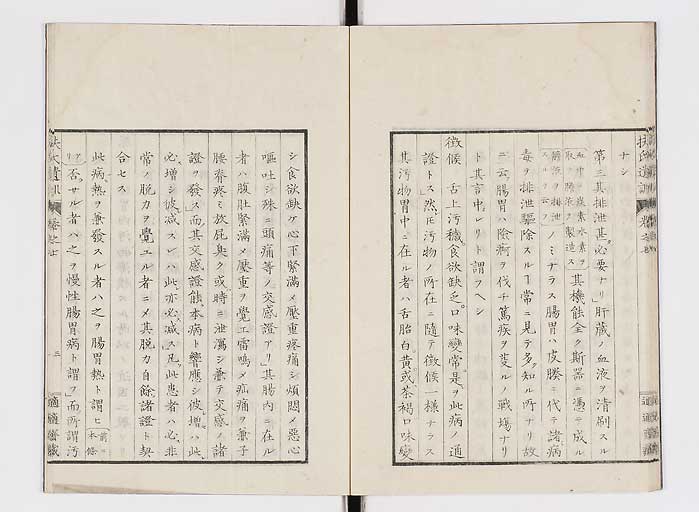 ナシ
第三其排泄甚必要ナリ肝蔵ノ血液ヲ清刷スル
其機能全ク斯器ニ憑テ成ル
ノミナラス腸胃ハ皮膝ニ代テ諸病
毒ヲ排泄驅除スルヿ常ニ見テ多知ル所ナリ故
ニ云腸胃ハ険痾ヲ伐チ篤疾ヲ斃ルノ戦場ナリ
ト其言中レリト謂フヘシ
徴候 舌上汚穢食欲缺乏口味變常是ヲ此病ノ通
證トス然𪜈汚物ノ所在ニ隨テ徴候一様ナラス
其汚物胃中ニ在ル者ハ舌胎白黄或茶褐口味變
シ食欲缺ケ心下緊満メ壓重疼痛シ煩悶メ悪心
嘔吐シ殊ニ頭痛等ノ交感證アリ其腸内ニ在ル
者ハ腹肚緊満メ壓重ヲ覚エ雷鳴メ疝痛ヲ兼子
腰脊疼ミ放屁臭ク或時ニ泄瀉シ兼テ交感ノ諸
證ヲ發ス而其交感證能本病ト響應シ彼増ハ此
必増シ彼減スレハ此亦必減ス凡此患者ハ必非
常ノ脱力ヲ覺エル者ニメ其脱力自餘諸證ト契
合セス
此病熱ヲ兼發スル者ハ之ヲ腸胃熱ト謂ヒ
否サル者ハ之ヲ慢性腸胃病ト謂フ而所謂汚
扶氏遺訓 巻之七
三
適適齋蔵